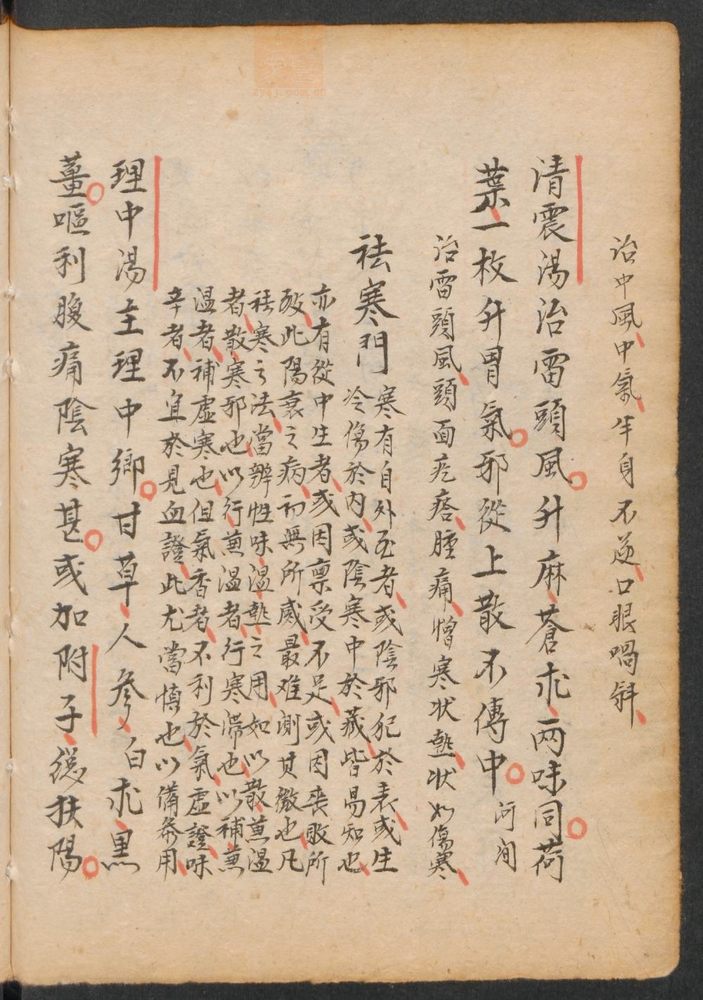 治中風中氣半身不遂口眼喎斜
清震湯治雷頭風升麻蒼朮兩味同荷
葉一枚升胃氣邪從上散不傳中河间
治雷頭風頭面疙瘩腫痛憎寒状熱状如傷寒
祛寒門
寒有自外至者或陰邪犯於表或生
冷傷於内或陰寒中於藏皆易知也
亦有從中生者或因禀受不足或因喪敗所
致此陽衰之病初無所感最难測其微也凡
祛寒之法當辨性味温熱之用如以散兼温
者散寒邪也以行兼温者行寒滯也以補兼
温者補虚寒也但氣香者不利於氣虚證味
辛者不宜於見血證此尤當慎也以備叅用
理中湯主理中鄉甘草人參白朮黑
薑嘔利腹痛陰寒甚或加附子總扶陽